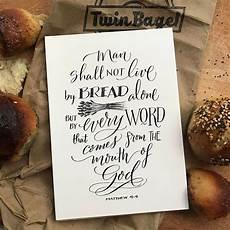 Twin Bagel
Man
shall not live
by BREAD alone
but by every WORD
that comes from the
mouth of
God
MATTHEW 4:4